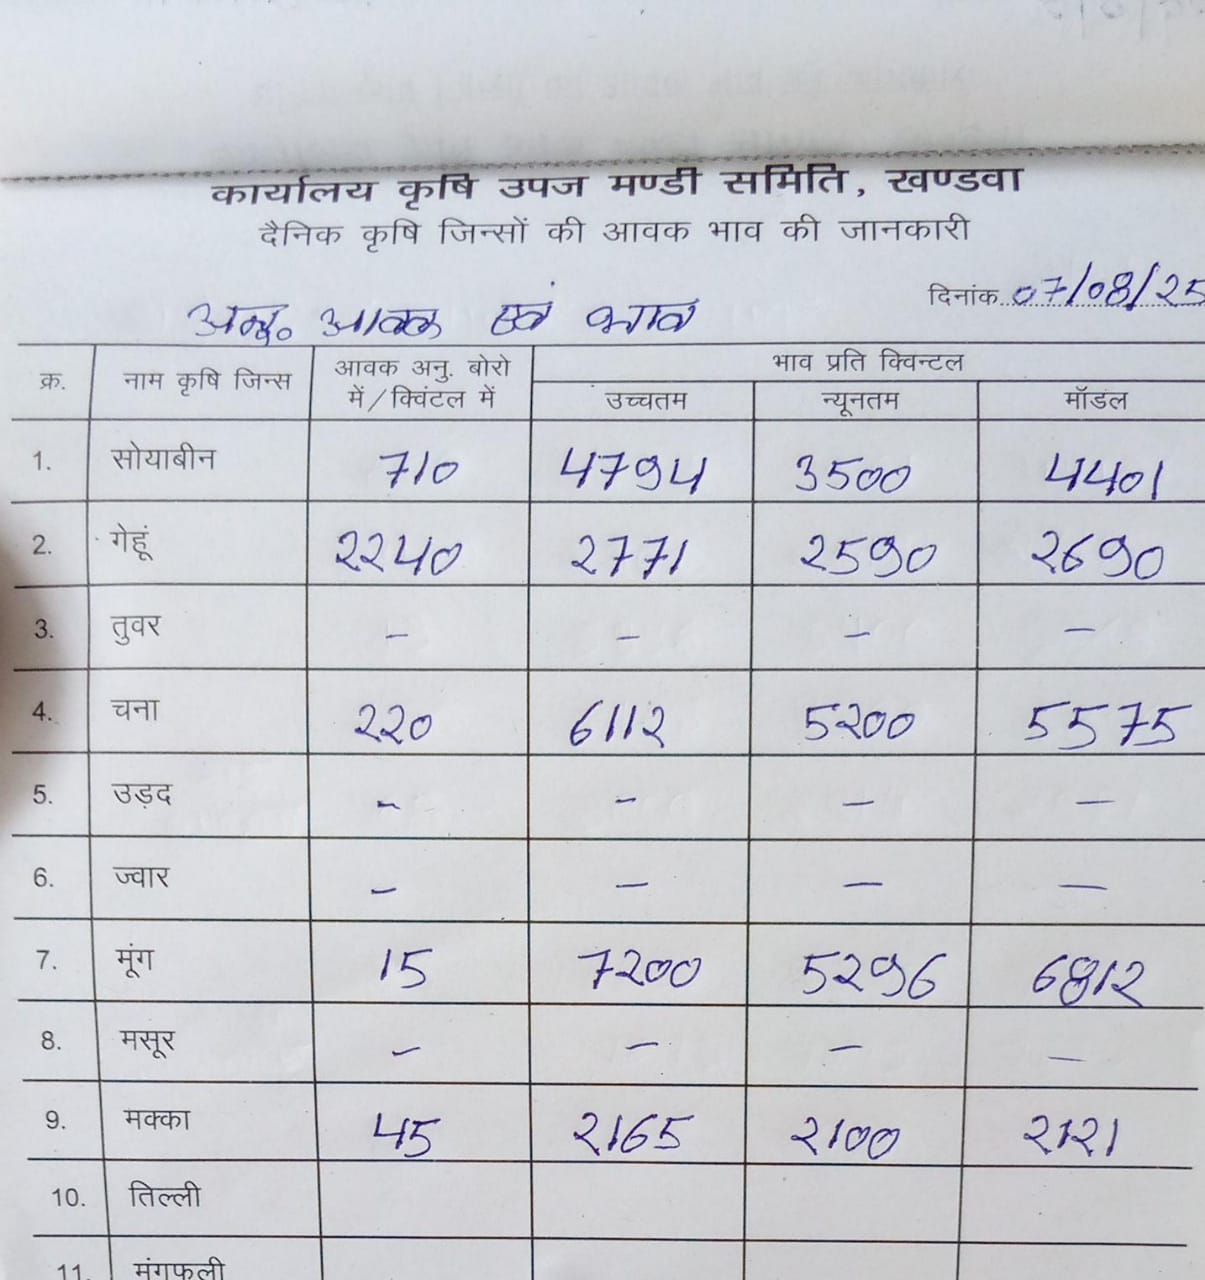 कार्यालय कृषि उपज मण्डी समिति, खण्डवा
दैनिक कृषि जिन्सों की आवक भाव की जानकारी
दिनांक 07/08/25
अनु. आवक एवं भाव
क्र. नाम कृषि जिन्स आवक अनु. बोरो में / क्विंटल में भाव प्रति क्विन्टल
उच्चतम न्यूनतम मॉडल
1. सोयाबीन 710 4794 3500 4401
2. गेहूं 2240 2771 2590 2690
3. तुवर – – – –
4. चना 220 6112 5200 5575
5. उड़द – – – –
6. ज्वार – – – –
7. मूंग 15 7200 5296 6812
8. मसूर – – – –
9. मक्का 45 2165 2100 2121
10. तिल्ली
11. मूंगफली